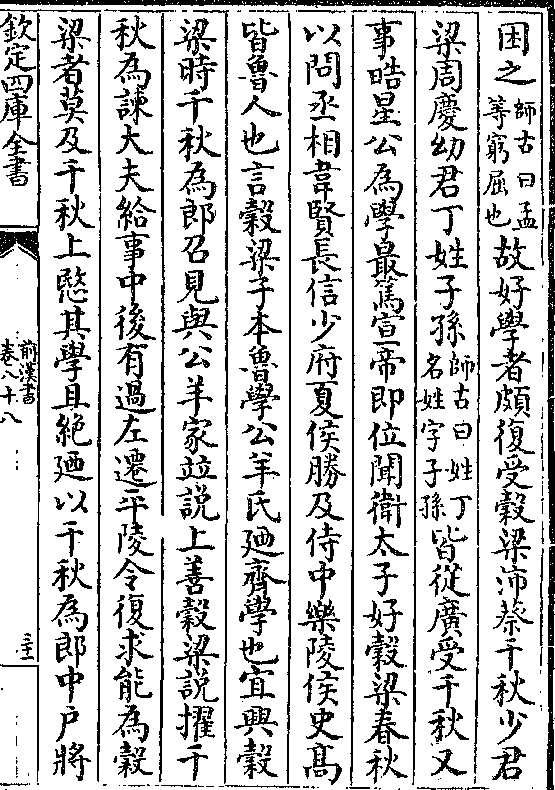 困之師古曰孟等窮屈也故好學者頗復受穀梁沛蔡千秋少君
梁周慶幼君丁姓子孫師古曰姓丁名姓字子孫皆從廣受千秋又
事皓星公為學最篤宣帝即位聞衛太子好穀梁春秋
以問丞相韋賢長信少府夏侯勝及侍中樂陵侯史髙
皆魯人也言穀梁子本魯學公羊氏廼齊學也宜興穀
梁時千秋為郎召見與公羊家竝説上善穀梁説擢千
秋為諫大夫給事中後有過左遷平陵令復求能為穀
梁者莫及千秋上愍其學且絶廼以千秋為郎中戶將
欽定四庫全書
前漢書
卷八十八
二十一